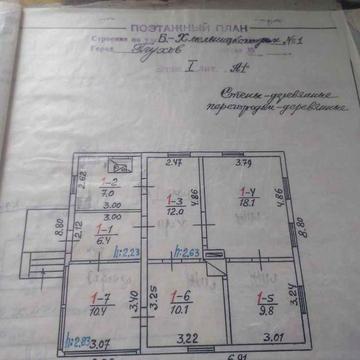 ПОЭТАЖНЫЙ ПЛАН
Строения на ул. Б-Хмельницкого № 1
Город Глухов
I ЛИТ. А1
Стены-деревянные
перегородки-деревянные
2.47 3.79
1-2
7.0
2.62
3.00
3.00
1-1
6.4
2.12
h:2.23
8.80
1-3
12.0
4.86
h:2.63
1-4
18.1
4.86
8.80
1-7
10.4
3.40
h:2.23
3.07
1-6
10.1
3.25
3.22
1-5
9.8
3.24
3.01
6.91